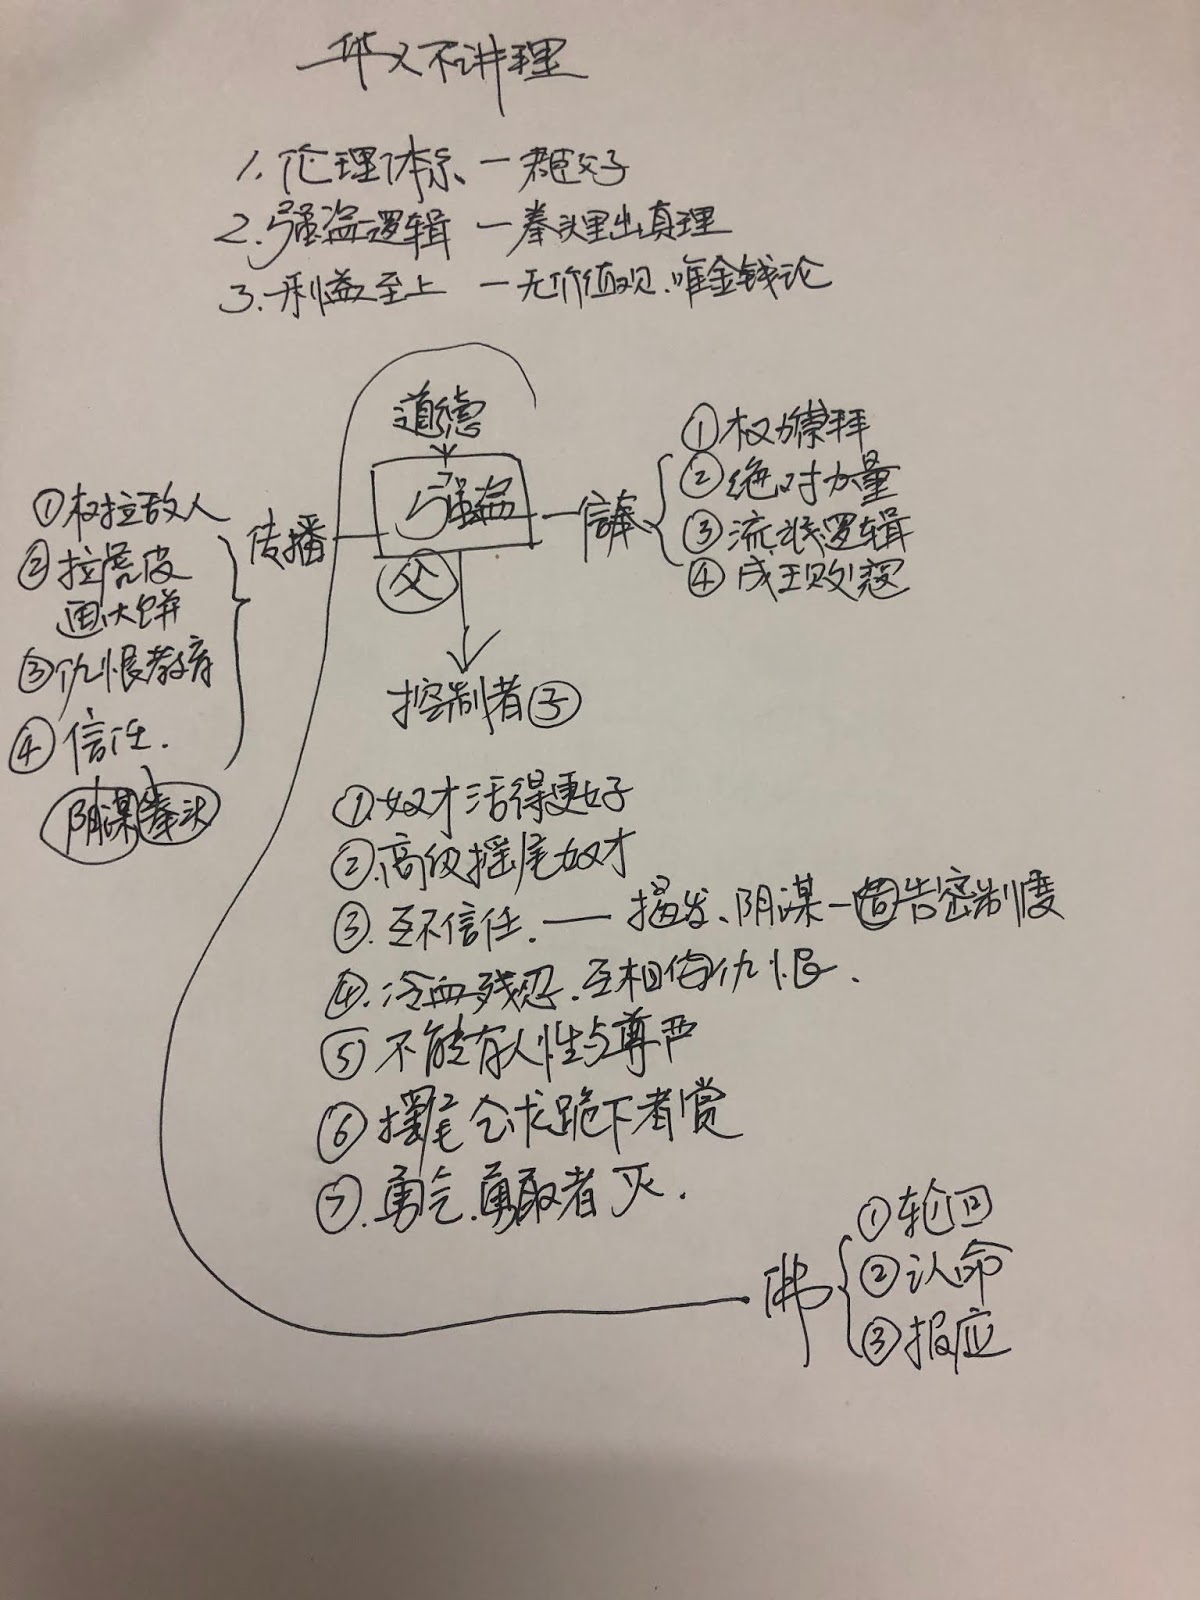 华人不讲理
1. 伦理体系 — 君臣父子
2. 强盗逻辑 — 拳头里出真理
3. 利益至上 — 无价值观.唯金钱论
道德
强盗
父
信奉
①权力崇拜
②绝对力量
③流氓逻辑
④成王败寇
传播
①树拉敌人
②拉虎皮
画大饼
③仇恨教育
④信任.
阴谋 拳头
控制者 子
①.奴才活得更好
②.高级摇尾奴才
③.互不信任. — 揭发、阴谋 — 告密制度
④.冷血残忍.互相 仇恨.
⑤不能有人性与尊严
⑥摇尾乞求跪下者赏
⑦.勇气.勇敢者灭.
佛
①轮回
②认命
③报应